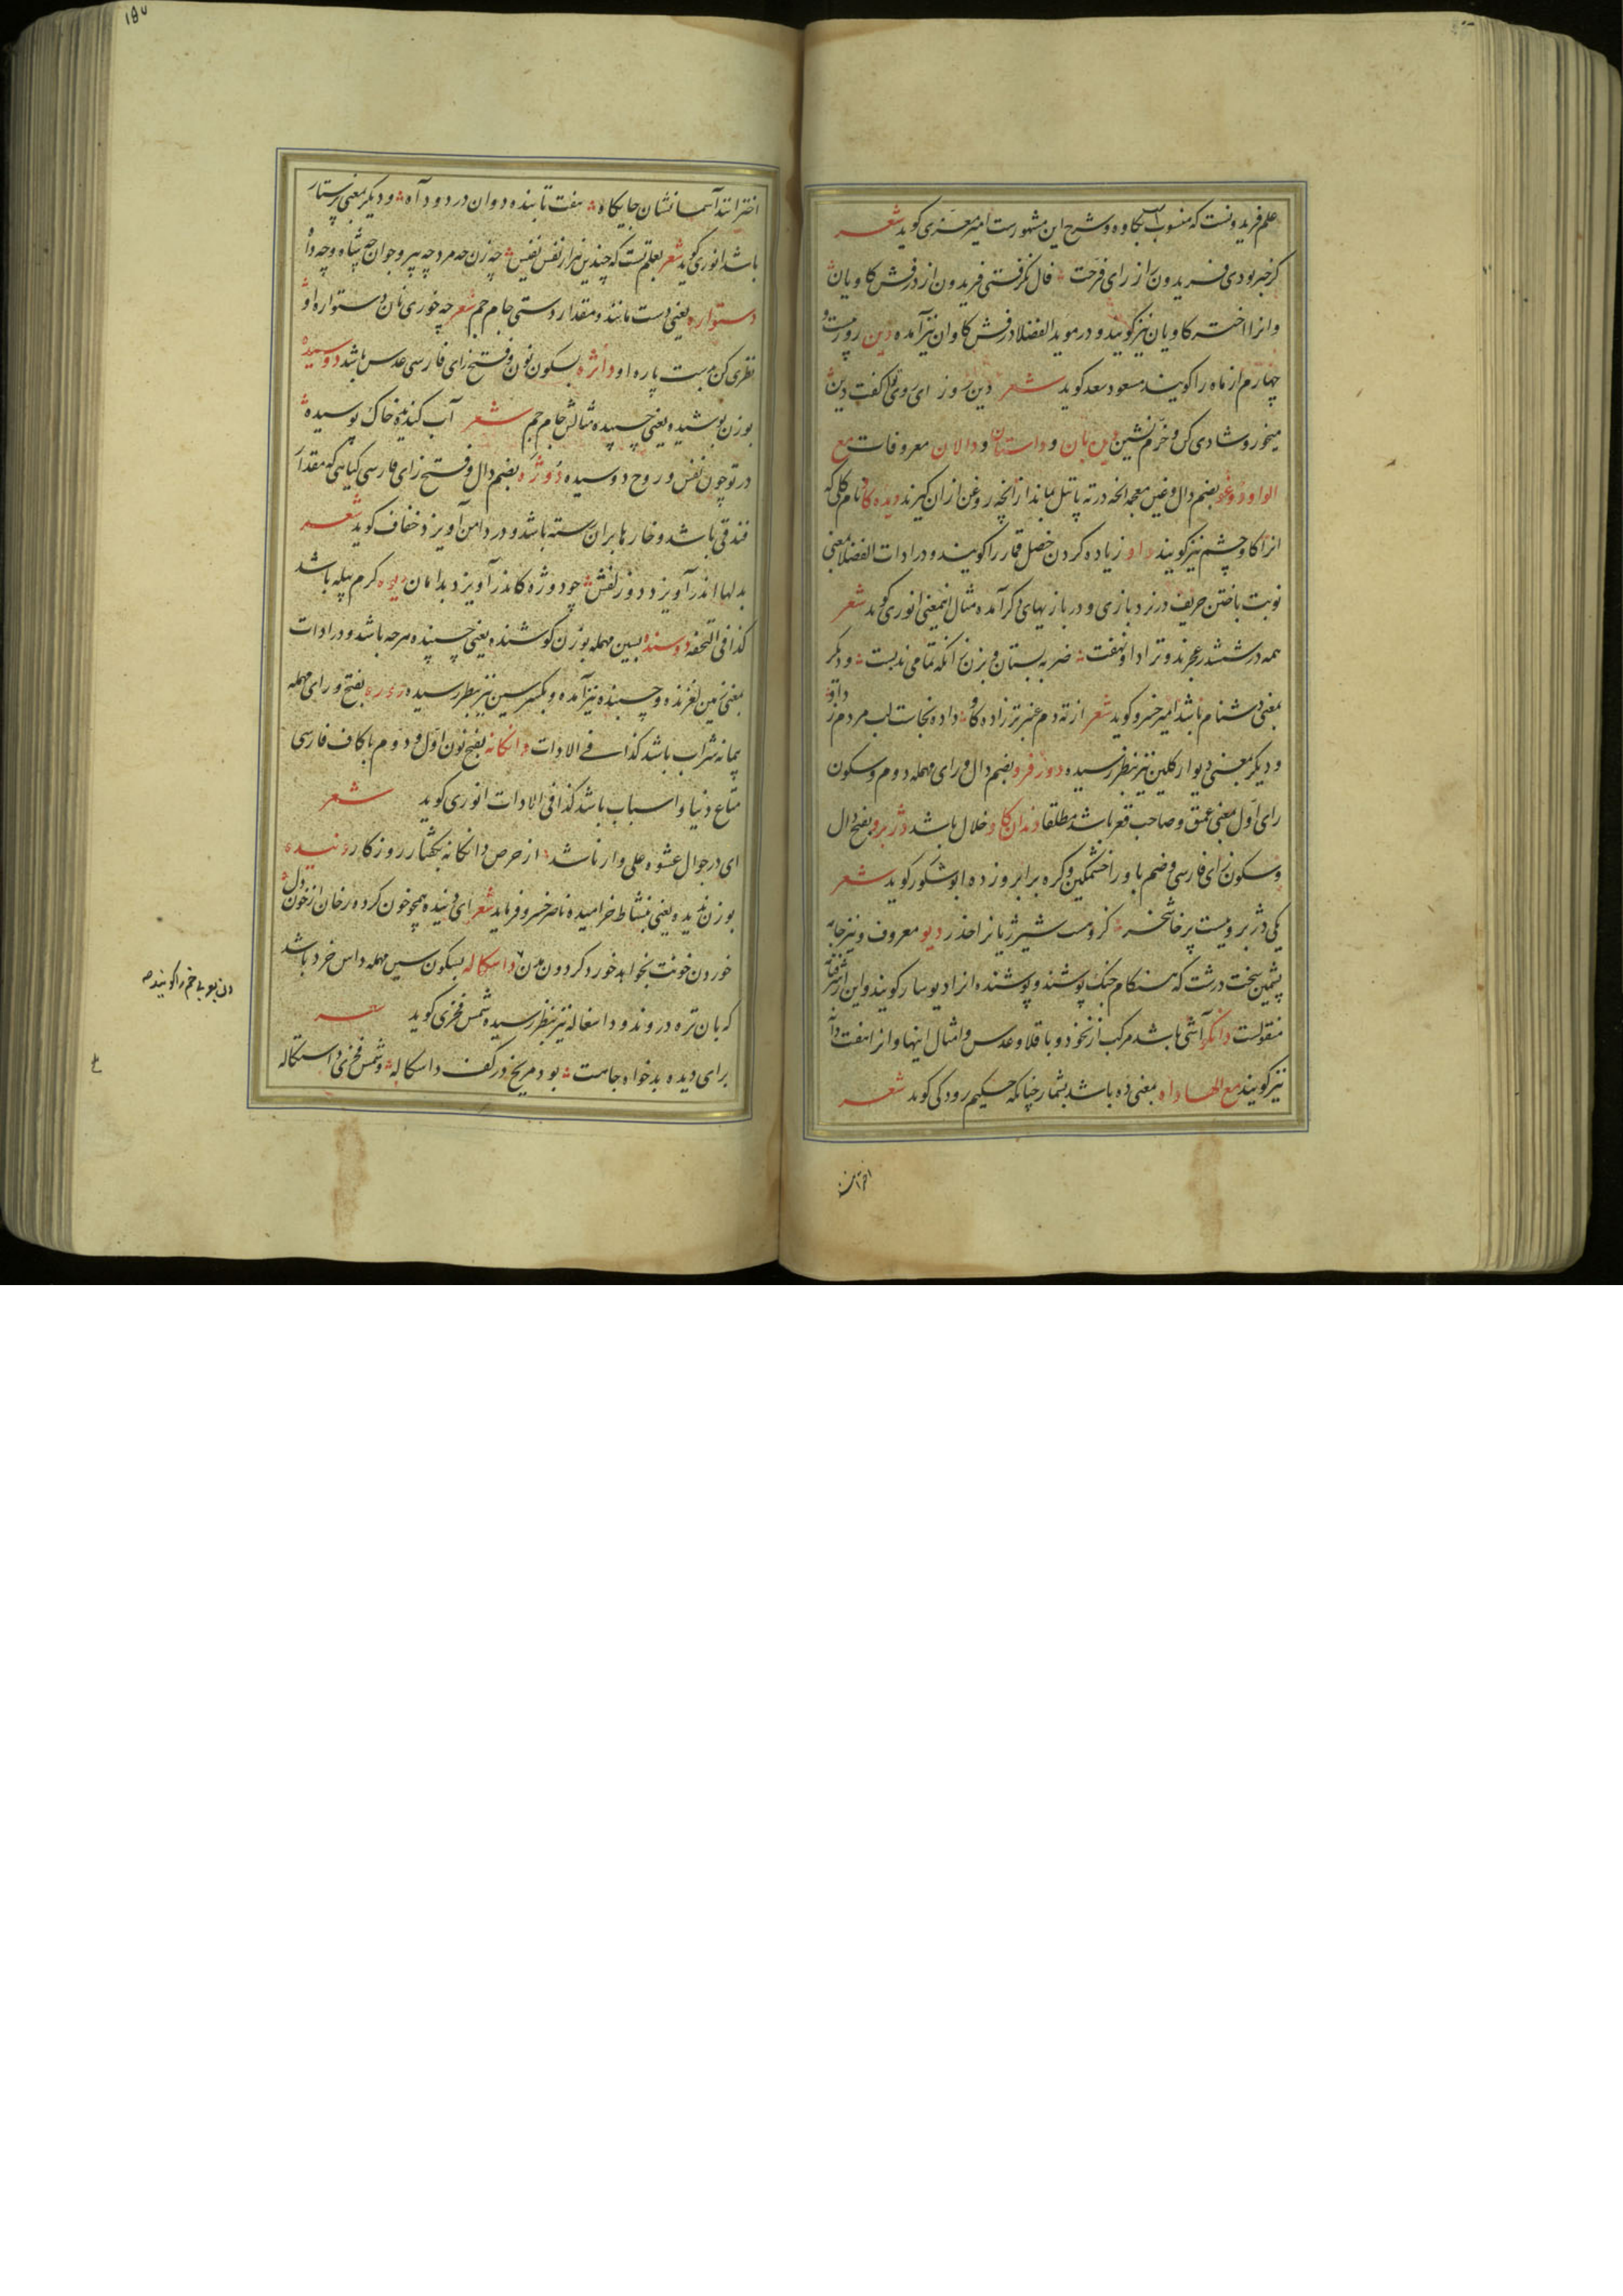 علم فریدونست که منسوب بکاوه و شرح این مشهورست امیر معزی کوید شعر
کر خبر بودی فریدون را از رای فرخت فال نکرفتی فریدون از درفش کاویان
وانرا اختر کاویان نیز کویند و در موید الفضلا درفش کاوان نیز آمده دین روز بیست و
چهارم از ماه را کویند مسعود سعد کوید شعر دین روز ای روی تو اکفت دین
میخور و شادی کن و خرم نشین دین بان و داستان و دالان معروفات مع
الواو دوغو بضم دال و غین معجمه انچه در ته پاتیل بماند ازانچه روغن ازان کیرند دیده کاو نام کلی که
انرا کاوچشم نیز کویند داو زیاده کردن خصل قمار را کویند و در ادات الفضلا بمعنی
نوبت باختن حریف در نرد بازی و در بازیهای دکر آمده مثال اینمعنی انوری کوید شعر
همه در ششدر عجزند و ترا داو بهفت ضربه بستان و بزن زانکه تمامی ندبست و دیکر
بمعنی دشنام باشد امیر خسرو کوید شعر از ته دم عنبر تر زاده کاو داده نجاست لب مردم ز داو
و دیکر بمعنی دیوار کلین نیز بنظر رسیده دورفرو بضم دال و رای مهمله دوم و سکون
رای اول بمعنی عمق و صاحب قعر باشد مطلقا دندان کاو خلال باشد دژبرو بفتح دال
و سکون زای فارسی و ضم با و را خشمکین و کره برابرو زده ابوشکور کوید شعر
یکی دژبرویست پرخاشخر کزو مست شیر ژیانرا حذر دیو معروف و نیز جامه
پشمین سخت درشت که هنکام جنک پوشند و پوشنده انرا دیوسار کویند و این از شرفنامه
منقولست دانکو آشی باشد مرکب از نخود و باقلا و عدس و امثال اینها و انرا هفت دانه
نیز کویند مع الهاء داه بمعنی ده باشد بشمار چنانکه حکیم رودکی کوید شعر
اختران
۱۵۷
اخترانند آسمانشان جایکاه هفت تابنده دوان در دو داه و دیکر بمعنی پرستار
باشد انوری کوید شعر بعلم تست که چندین هزار نفس نفیس چه زن چه مرد چه پیر و جوان چه شاه و چه داه
دستواره یعنی دست مانند و مقدار دستی جام جم شعر چه خوری نان دستواره او
نظری کن بدست پاره او دانژه بسکون نون و فتح زای فارسی عدس باشد دوسیده
بوزن پوشیده یعنی چسپیده مثالش جام جم شعر آب کندیده خاک پوسیده
در تو چون نفس و روح دوسیده دوژه بضم دال و فتح زای فارسی کیاهی که مقدار
فندقی باشد و خارها بران رسته باشد و در دامن آویزد خفاف کوید شعر
بدلها اندر آویزد دو زلفش چو دوژه کاندر آویزد بدامان دیوه کرم پیله باشد
کذا فی التحفه دوسنده بسین مهمله بوزن کوشنده یعنی چسپنده هرچه باشد و در ادات
بمعنی زمین لغزنده و چسبنده نیز آمده و بکسر سین نیز بنظر رسیده دوره بفتح و رای مهمله
پیمانه شراب باشد کذا فی الادات دانکانه بفتح نون اول و دوم با کاف فارسی
متاع دنیا و اسباب باشد کذا فی الادات انوری کوید شعر
ای در جوال عشوه علی وار ناشد از حرص دانکانه بکفتار روزکار دنیده
بوزن ندیده یعنی بنشاط خرامیده ناصر خسرو فرماید شعر ای دنیده همچو خون کرده رخان از خون دل
خوردن خونت بخواهد خورد کردون دن داسکاله بسکون سین مهمله داس خرد باشد
که بان تره دروند و داسغاله نیز بنظر رسیده شمس فخری کوید شعر
برای دیده بدخواه جاهت بود مریخ در کف داسکاله و شمس فخری داستکاله